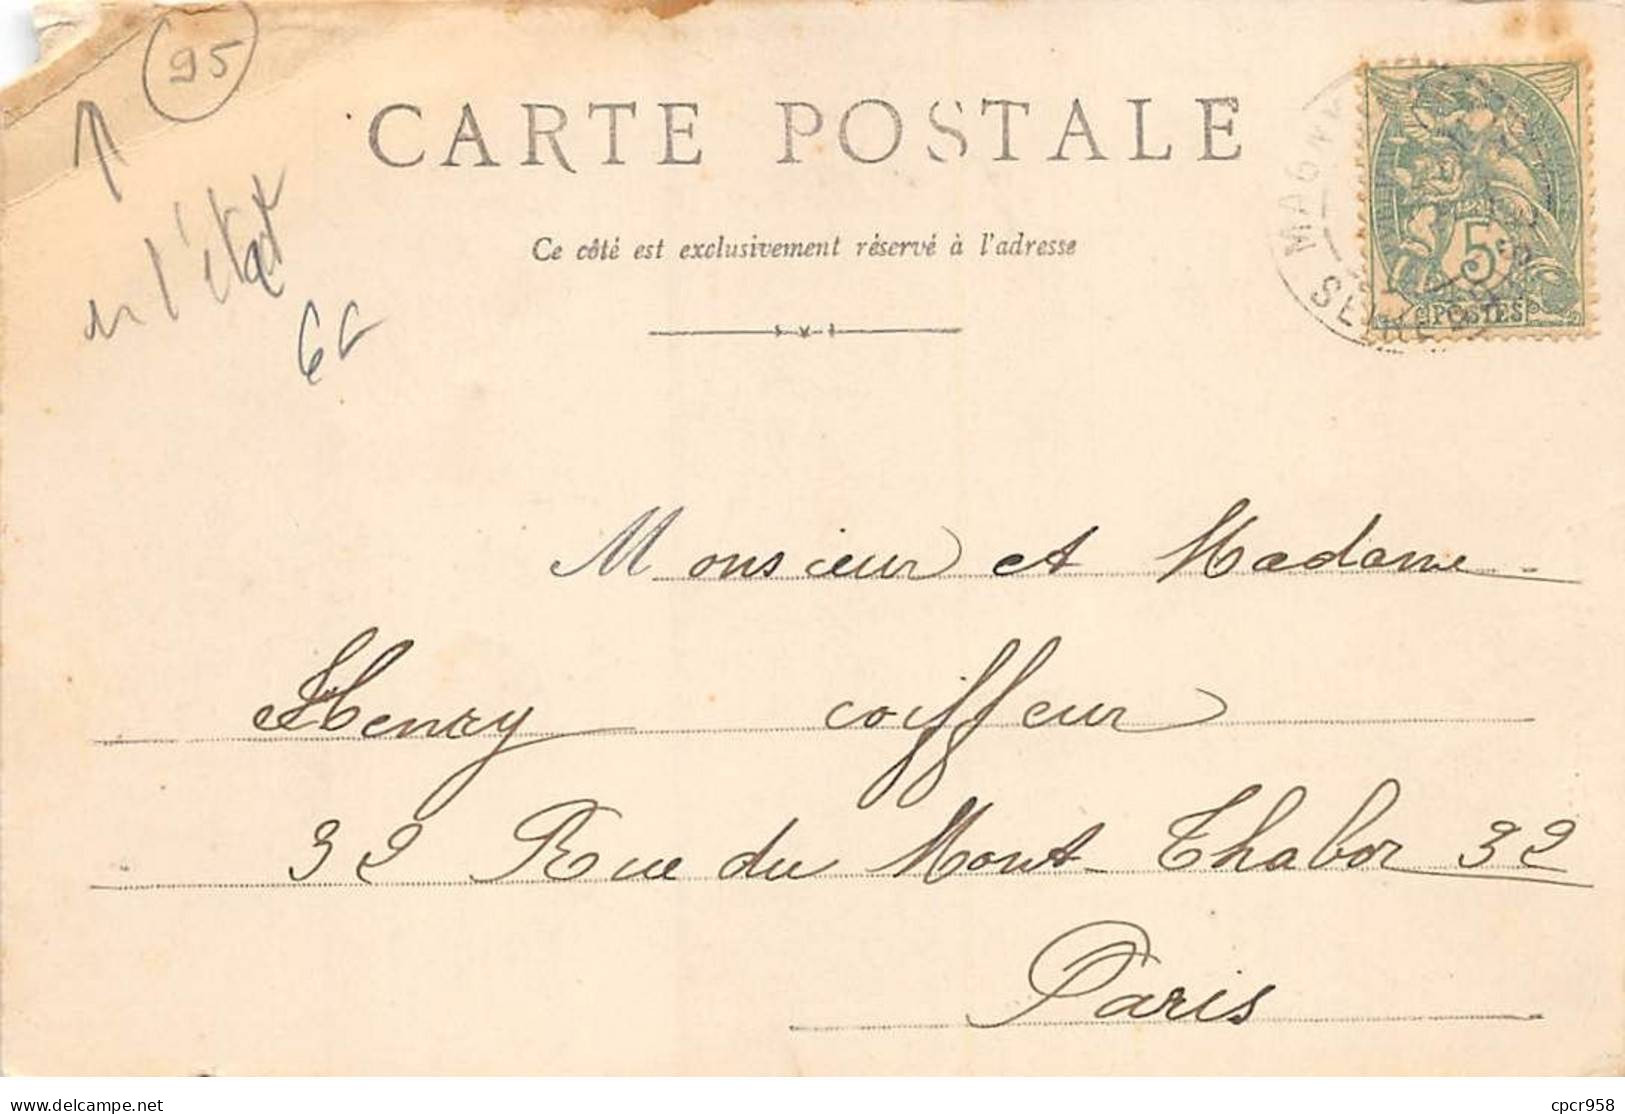 95
CARTE POSTALE
Ce côté est exclusivement réservé à l'adresse
en l'état
MAGNY
SEINE
5c
POSTES
Monsieur et Madame
Henry coiffeur
32 Rue du Mont Thabor 32
Paris
delcampe.net
cpcr958